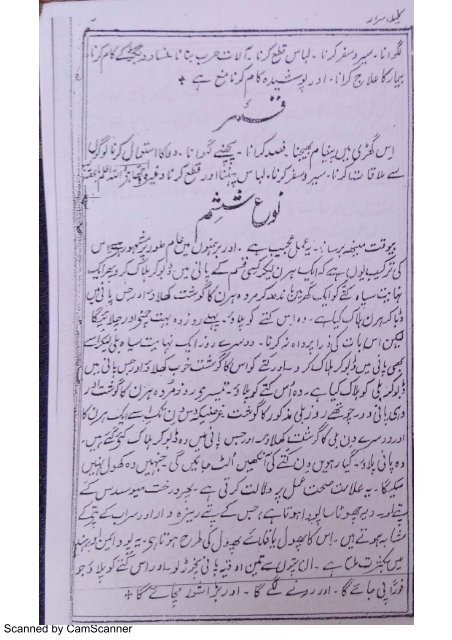 کلید اسرار
لگوانا۔ سیر و سفر کرنا۔ لباس قطع کرنا۔ آلات حرب بنانا۔ فساد و جھگڑے کے کام کرنا۔
بیمار کا علاج کرانا۔ اور پوشیدہ کام کرنا منع ہے
قمر
اس گھڑی میں پیغام بھیجنا۔ فصد کرانا۔ پچھنے لگوانا۔ دوا کا استعمال کرنا لوگوں
سے ملاقات کرنا۔ سیر و سفر کرنا۔ لباس پہننا اور قطع کرنا وغیرہ
نوع ششم
بیوقت مینھ برسانا۔ یہ عمل عجیب ہے۔ اور برہمنوں میں عام طور پر مشہور ہے اس
کی ترکیب یوں ہے کہ ایک ہرن لیکر کسی قسم کے پانی میں ڈبو کر ہلاک کر دے پھر ایک
نہایت سیاہ کتے کو ایک گھر میں باندھ کر مردہ ہرن کا گوشت کھلاؤ اور جس پانی میں
ڈبا کر ہرن ہلاک کیا ہے۔ وہ اس کتے کو پلاؤ۔ پہلے روز وہ بہت چیخے اور چلائیگا
لیکن اس بات کی ذرا پرواہ نہ کرنا۔ دوسرے روز ایک نہایت سیاہ بلی لیکر اسے
بھی پانی میں ڈبو کر ہلاک کر دے اور کتے کو اس کا گوشت خوب کھلاؤ اور جس پانی میں
ڈبو کر بلی کو ہلاک کیا ہے۔ وہ اس کتے کو پلاؤ۔ تیسری روز مردہ ہرن کا گوشت اور
وہی پانی دو۔ چوتھے روز بلی مذکور کا گوشت غرضیکہ دس دن تک اسے ایک ہرن کا
اور دوسرے دن بلی کا گوشت کھلاؤ۔ اور جس پانی میں وہ ڈبو کر ہلاک کئے گئے ہیں۔
وہ پانی پلاؤ۔ گیارہویں دن کتے کی آنکھیں الٹ جائیں گی جنہیں وہ کھول نہیں
سکیگا۔ یہ علامت صحت عمل پر دلالت کرتی ہے۔ پھر درخت کے
پتے لے۔ یہ چھوٹا سا پودا ہوتا ہے، جس کے پتے ریزہ دار اور سراب کے پتے کے
مشابہ ہوتے ہیں۔ اس کا پھول کے پھول کی طرح ہوتا ہی۔ یہ پودا
میں بکثرت ملتا ہے۔ ان پتوں سے تین اوقیہ پانی نچوڑ لو۔ اور اس کتے کو پلاؤ جو
فوراً پی جائے گا۔ اور رونے لگے گا۔ اور بڑا شور مچائے گا
Scanned by CamScanner